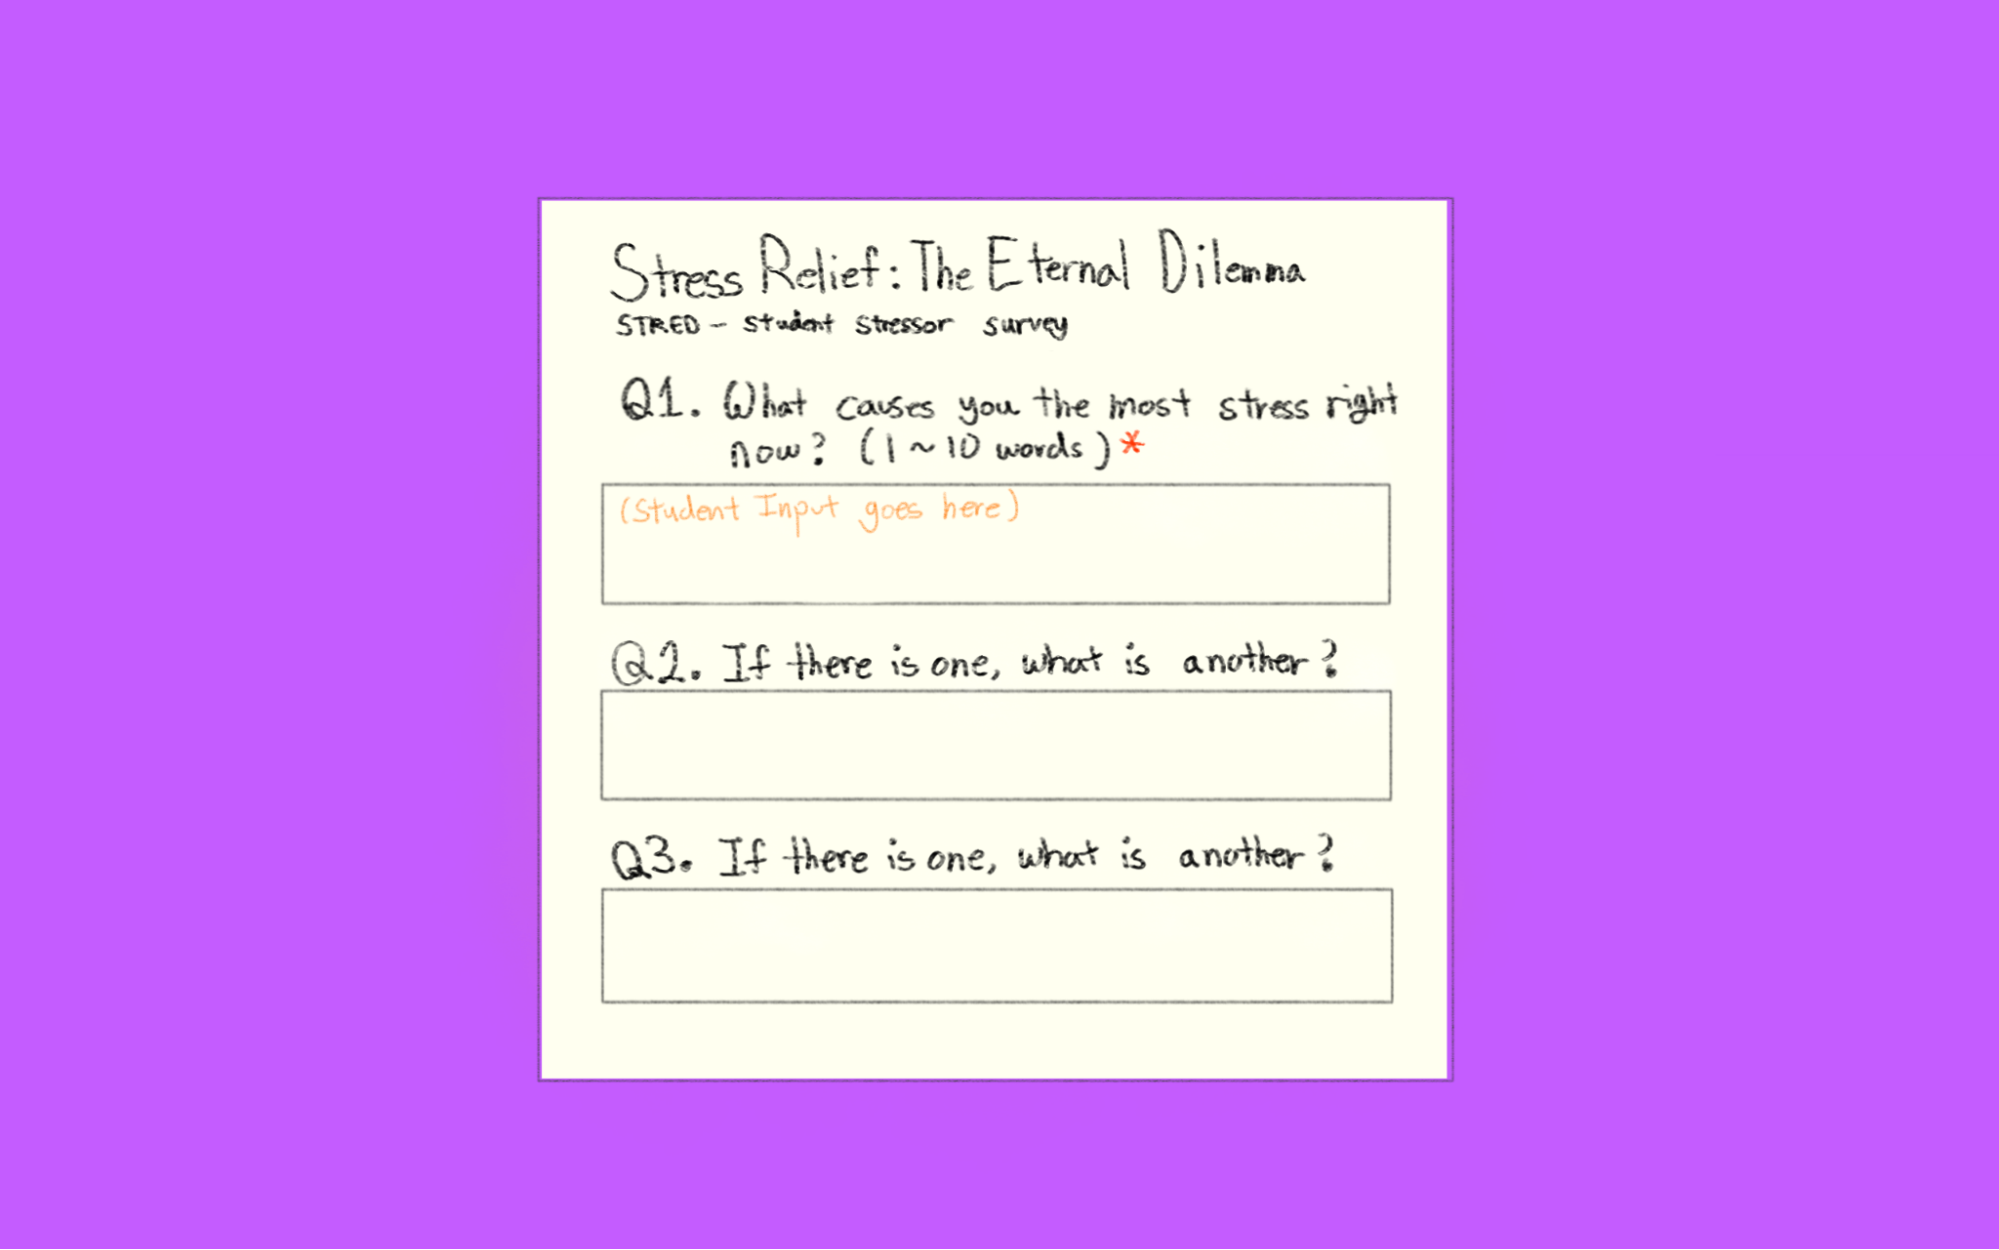 Stress Relief: The Eternal Dilemma
STRED - student stressor survey
Q1. What causes you the most stress right
now? (1 ~ 10 words) *
(Student Input goes here)
Q2. If there is one, what is another?
Q3. If there is one, what is another?